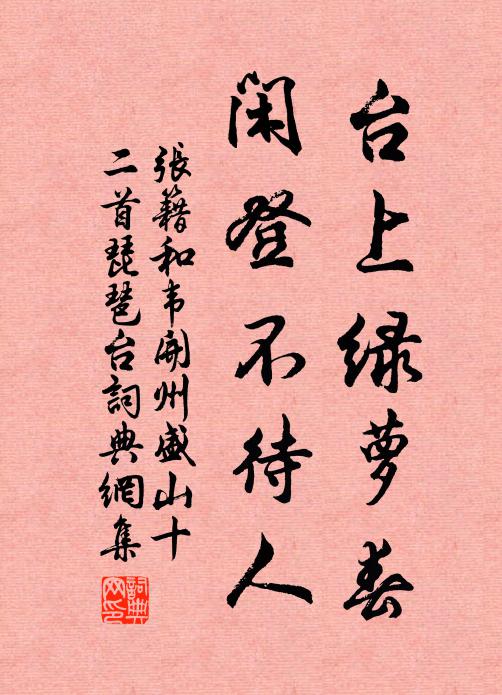 台上绿萝春
闲登不待人
張籍和韦開州盛山十
二首琵琶台詞典網集